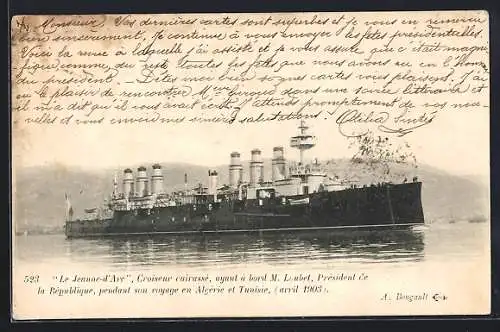 Monsieur Vos dernières cartes sont superbes et je vous en remercie
bien sincèrement. Je continue à vous envoyer les fêtes présidentielles.
Voici la revue à laquelle j'ai assisté et je vous assure que c'était magni-
fique comme, du reste, toutes les fêtes que nous avons eu en l'honn
du président. — Dites moi bien si mes cartes vous plaisent. J'ai
eu le plaisir de rencontrer Mr Giroud dans une soirée littéraire et
il m'a dit qu'il vous avait J'attends promptement de vos nou-
velles et vous envoie mes sincères salutations.
523 "Le Jeanne-d'Arc", Croiseur cuirassé, ayant à bord M. Loubet, Président de
la République, pendant son voyage en Algérie et Tunisie, (avril 1903).
A. Bougault